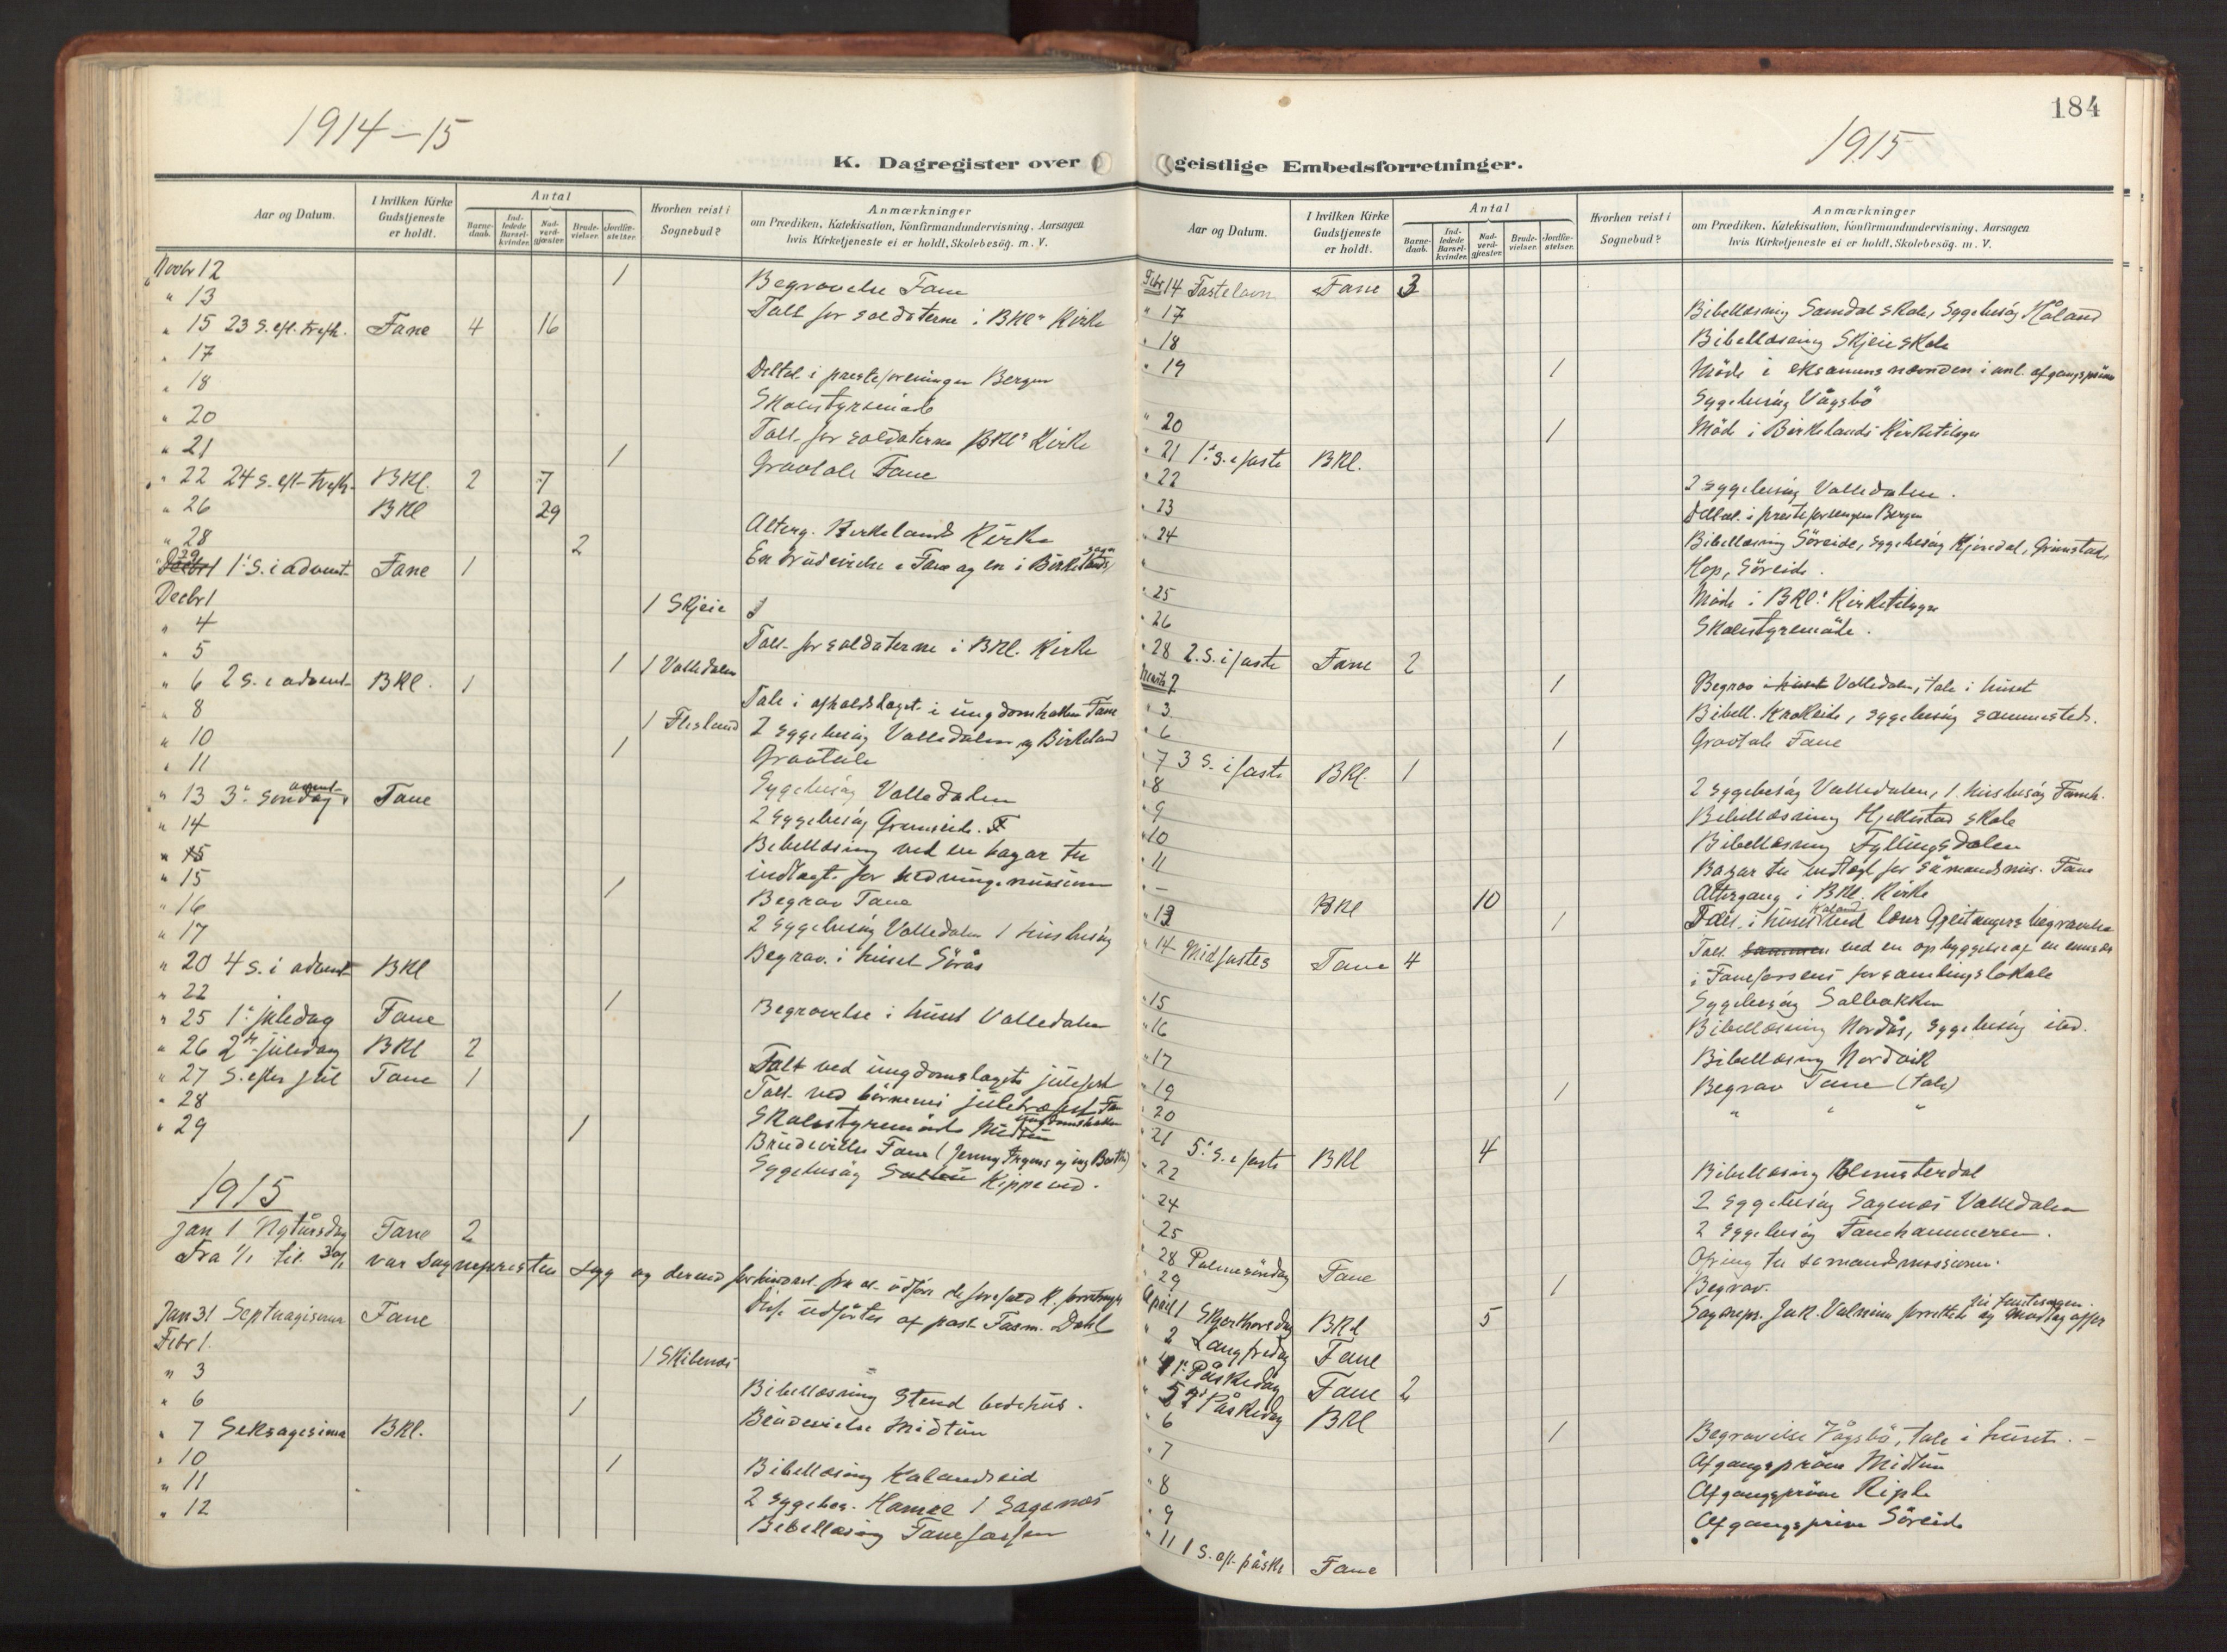 1914–15
K. Dagregister over
Aar og Datum.
I hvilken Kirke Gudstjeneste er holdt.
Antal
Barnedaab.
Indledede Barselkvinder.
Nadverdgjæster.
Brudevielser.
Jordfæstelser.
Hvorhen reist i Sognebud?
Anmærkninger
om Prædiken, Katekisation, Konfirmandundervisning, Aarsagen
hvis Kirketjeneste ei er holdt, Skolebesøg. m. V.
Novbr 12 1 Begravelse Fane
" 13 Talt for soldaterne i BKl" Kirke
" 15 23 S. eft. trefh. Fane 4 16
" 17 Deltat i presteforeningen Bergen
" 18 Skolestyremöde
" 20 Talt for soldaterne BKl" Kirke
" 21 1 Gravtale Fane
" 22 24 S. eft. trefh. BKl. 2 7
" 26 BKl 29 Alterg. Birkelands Kirke
" 28 2 En brudevielse i Fane og en i Birkelands sogn
" 29 1. S. i advent Fane 1
Decbr 1 1 Skjeie
" 4 Talt for soldaterne i BKl. Kirke
" 5 1 1 Valledalen
" 6 2 S. i advent BKl. 1
" 8 Tale i afholdslaget i ungdomshallen Fane
1 Flesland 2 sygebesög Valledalen og Birkeland
" 10 1 Gravtale
" 11 Sygebesög Valledalen
" 13 3. söndag i advent Fane
" 14 2 sygebesög
" 15 Bibellæsning ved en bazar til
" 15 indtægt for hedningemissionen
" 16 1 Begrav Fane
" 17 2 sygebesög Valledalen 1 husbesög
" 20 4 S. i advent BKl Begrav. i huset Sörås
" 22 1 Begravelse i huset Valledalen
" 25 1. juledag Fane
" 26 2. juledag BKl 2
" 27 S. efter jul Fane 1 Talt ved ungdomslagets julefest
" 28 Talt ved börnenes juletræfest Fa
ungdomshallen
" 29 1 Skolestyremöde Midtun
Brudevielse Fane
Sygebesög
1915
Jan 1 Nytårsdag Fane 2
Fra 1/1 til 30/1 var sognepresten syg og derved forhindret fra at udföre
Disse udförtes af past. Dahl
Jan 31 Septuagesima Fane
Febr 1.
" 3 1 Skibenes
" 6 1 Bibellæsning Stend bedehus.
" 7 Seksagesima BKl. Brudevielse Midtun
" 10 1 Bibellæsning Kalandseid
" 11 2 sygebes. Hamre 1 Sagenes
" 12 Bibellæsning Fanefossen
184
1915
geistlige Embedsforretninger.
Aar og Datum.
I hvilken Kirke Gudstjeneste er holdt.
Antal
Barnedaab.
Indledede Barselkvinder.
Nadverdgjæster.
Brudevielser.
Jordfæstelser.
Hvorhen reist i Sognebud?
Anmærkninger
om Prædiken, Katekisation, Konfirmandundervisning, Aarsagen
hvis Kirketjeneste ei er holdt, Skolebesøg. m. V.
Febr 14 Fastelavn Fane 3
" 17 Bibellæsning Samdal skole, sygebesög Håland
" 18 Bibellæsning Skjeie skole
" 19 1 Möde i eksamensnævnden i anl. afgangspröve
Sygebesög Vågsbö
" 20 1 Möde i Birkelands Kirketilsyn
" 21 1. S. i faste BKl.
" 22 2 sygebesög Valledalen.
" 23 Deltat i presteforeningen Bergen
" 24 Bibellæsning Söreide, sygebesög Grimstad,
" Hop, Söreide.
" 25 Möde i BKl. Kirketilsyn
" 26 Skolestyremöde.
" 28 2. S. i faste Fane 2
Marts 2 1 Begrav Valledalen, tale i huset
" 3 Bibell. Krokeide, sygebesög sammesteds.
" 6 1 Gravtale Fane
" 7 3 S. i faste BKl. 1
" 8 2 sygebesög Valledalen, 1 husbesög
" 9 Bibellæsning Hjellestad skole
" 10 Bibellæsning Fyllingsdalen
" 11 Bazar til indtægt for Sömandsmis. Fane
" – BKl 10 Altergang i BKl. Kirke
" 13 1 Tale i huset ved begravelse
" 14 Midfaste s Fane 4 Talt ved en opbyggelse
i Fanefossens forsamlingslokale
" 15 Sygebesög Solbakken
" 16 Bibellæsning Nordås, sygebesög
" 17 Bibellæsning Nordvik
" 19 1 Begrav Fane (tale)
" 20 " " "
" 21 5. S. i faste BKl 4
" 22 Bibellæsning Blomsterdal
" 24 2 sygebesög Sagenes Valledalen
" 25 2 sygebesög Fanehammeren.
" 28 Palmesöndag Fane Ofring til sömandsmissionen.
" 29 1 Begrav.
April 1 Skjærthorsdag BKl 5
" 2 Langfredag Fane
" 4 1. Påskedag Fane 2
" 5 2. Påskedag BKl
" 6 1 Begravelse Vågsbö, tale i huset. –
" 7 Afgangspröve Midtun
" 8 Afgangspröve Riple
" 9 Afgangspröve Söreide
" 11 1 S. eft. påske Fane